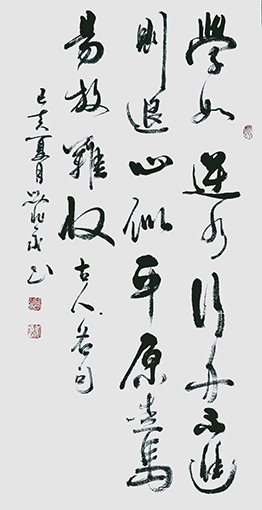 學如逆水行舟不進
則退心似平原走馬
易放難收古人名句
己亥夏月永书